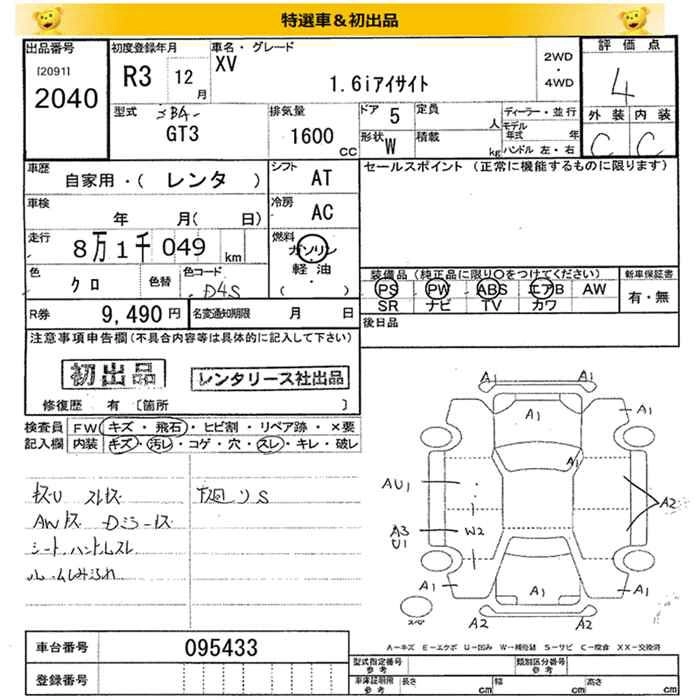 特選車&初出品
出品番号 初度登録年月 車名・グレード 2WD・4WD 評価点
[2091] R3 12月 XV 1.6iアイサイト 4
2040
型式 3BA- 排気量 ドア 5 定員 人 ディーラー・並行 外装 内装
GT3 1600cc 形状 W 積載 kg モデル年式 年 C C
ハンドル 左・右
車歴 自家用・( レンタ ) シフト AT セールスポイント (正常に機能するものに限ります)
車検 年 月( 日) 冷房 AC
走行 8万1千049km 燃料 ガソリン・軽油・( )
色 クロ 色替 色コード D4S 装備品(純正品に限り○をつけてください) 新車保証書
PS PW ABS エアB AW 有・無
SR ナビ TV カワ
R券 9,490円 名変通知期限 月 日 後日品
注意事項申告欄(不具合内容等は具体的に記入して下さい)
初出品 レンタリース社出品
修復歴 有 〔箇所 〕
検査員 FW キズ・飛石・ヒビ割・リペア跡・×要
記入欄 内装 キズ・汚レ・コゲ・穴・スレ・キレ・破レ
下廻リS
シート、ハンドルスレ
A1 A1
A1 A1
A1
AU1 A2
A3 W2
U1
A1 A1 A1
A2 A2
スペア
A-キズ E-エクボ U-凹み W-補修跡 S-サビ C-腐食 XX-交換済
車台番号 095433 型式指定番号 参考 類別区分番号 参考
登録番号 車庫証明用 参考 長さ cm 幅 cm 高さ cm